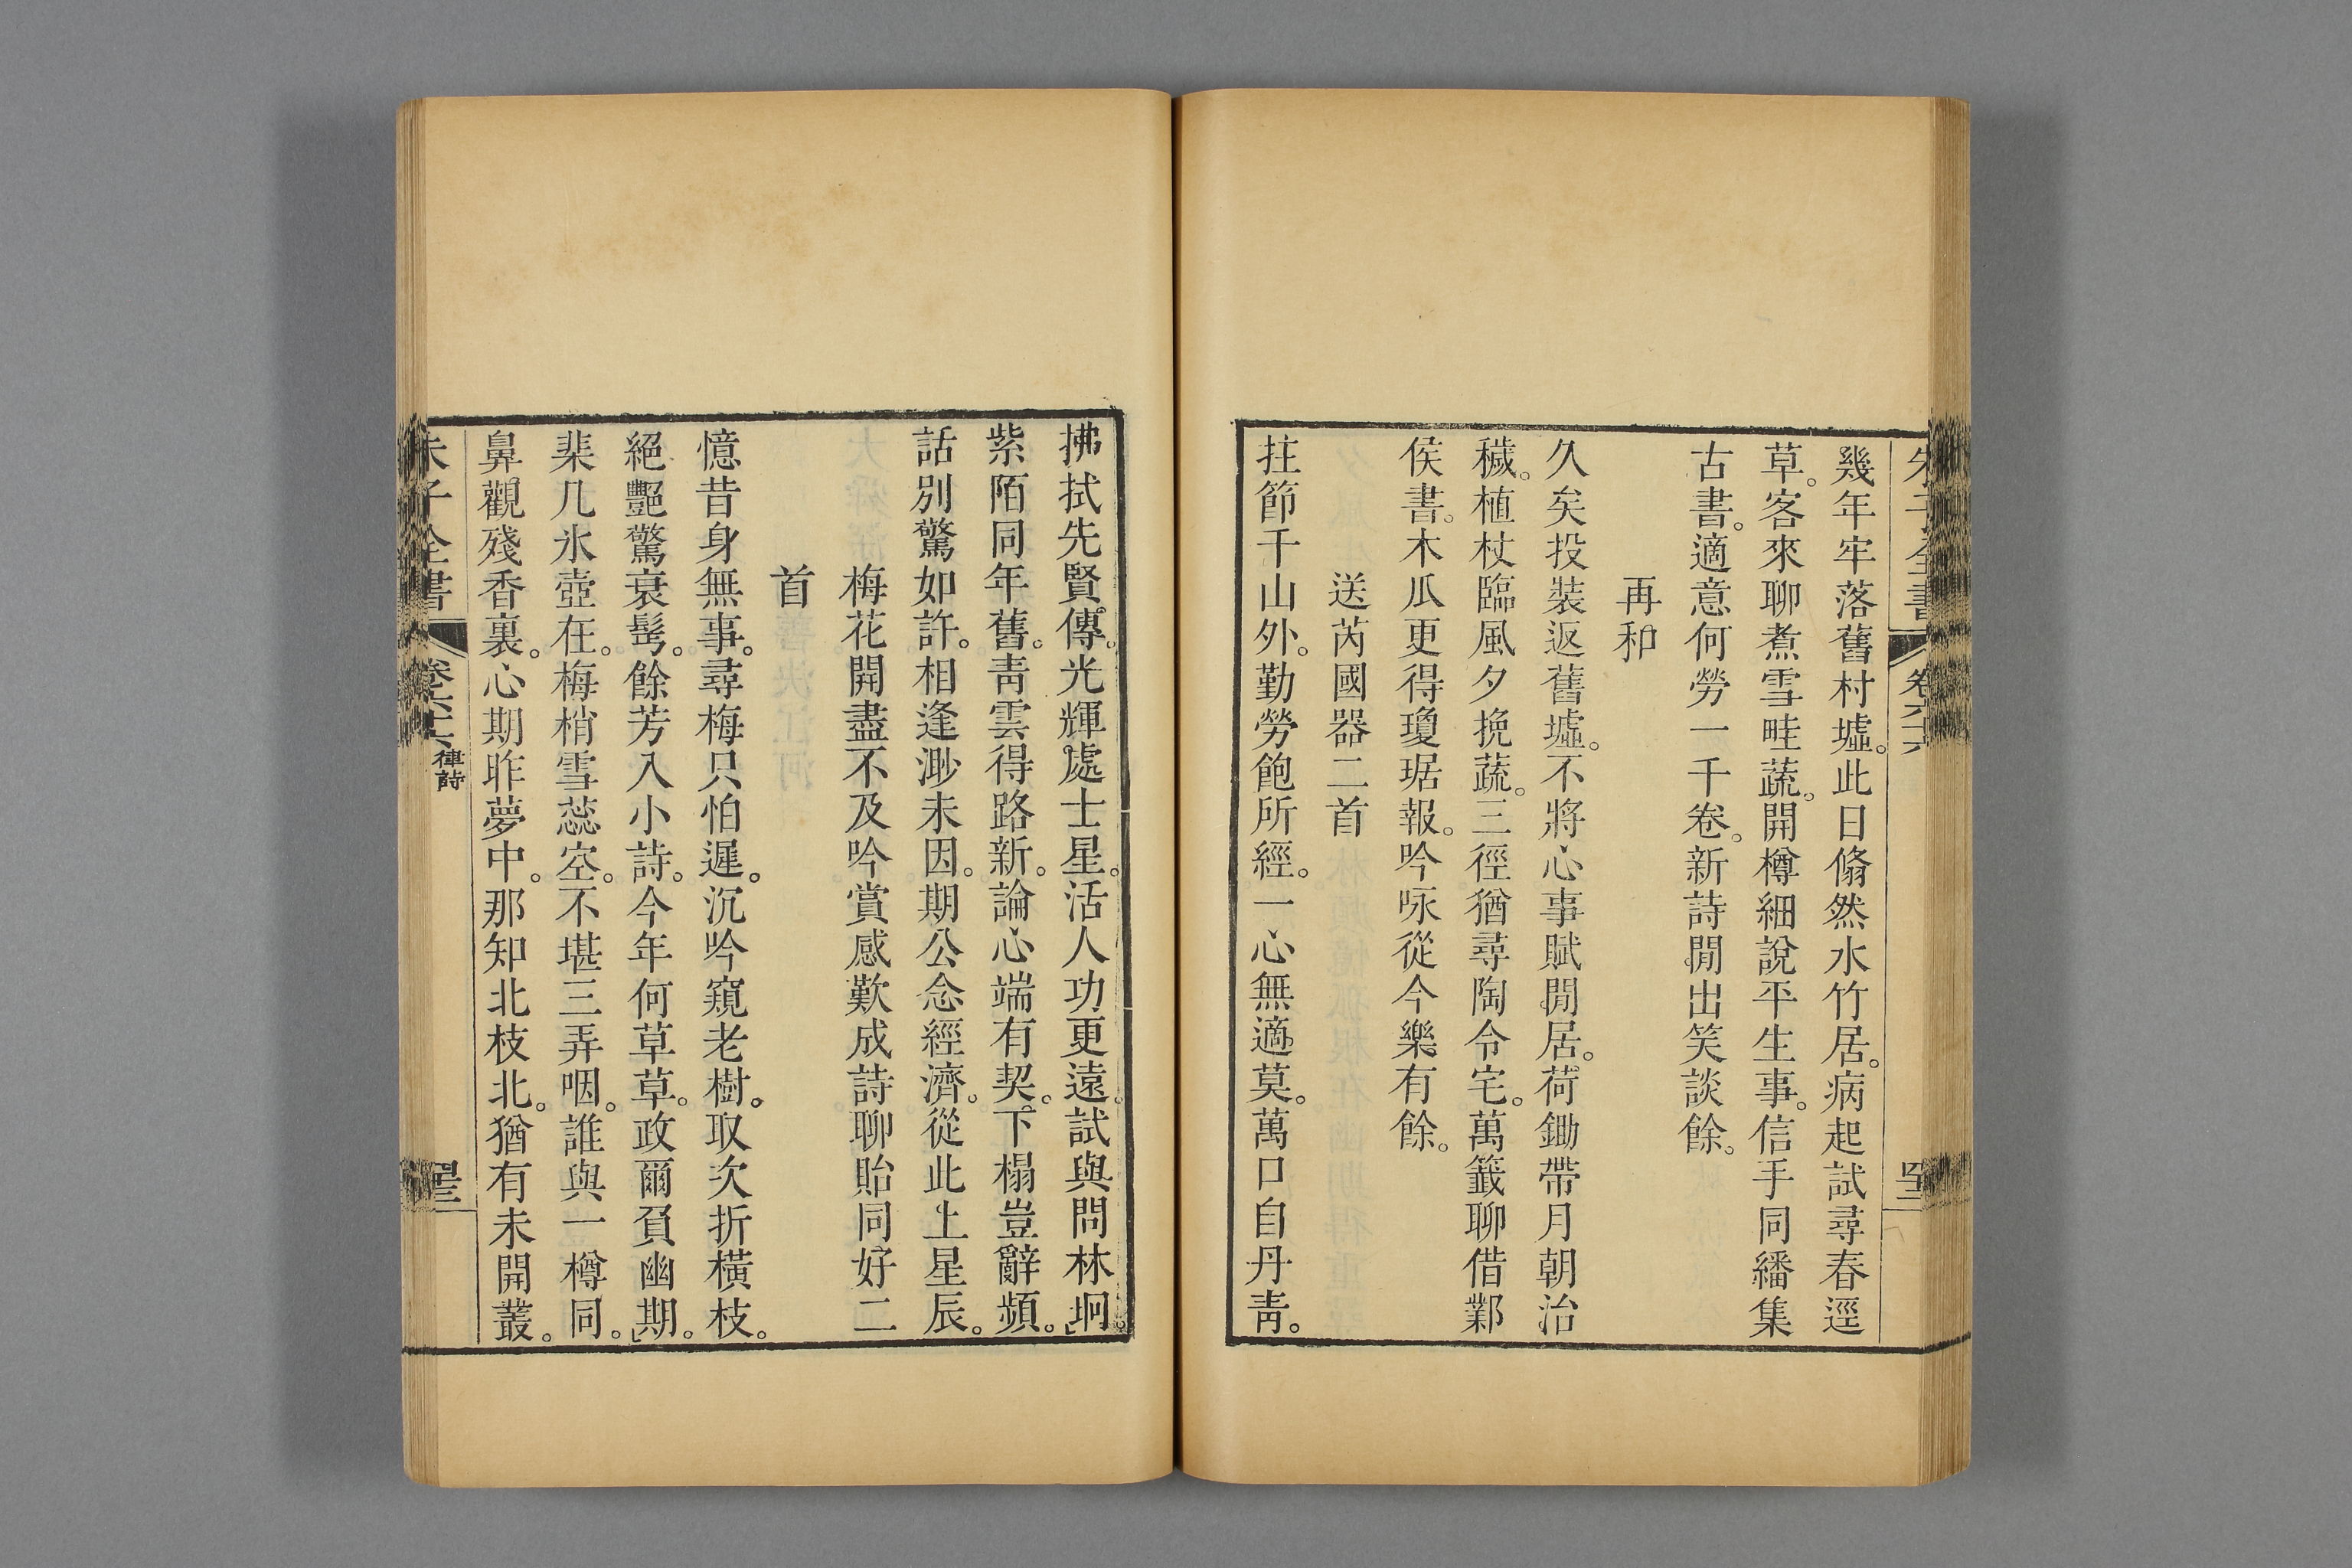 幾年牢落舊村墟。此日翛然水竹居。病起試尋春逕
草。客來聊煮雪畦蔬。開樽細說平生事。信手同繙集
古書。適意何勞一千卷。新詩閒出笑談餘。
再和
久矣投裝返舊墟。不將心事賦閒居。荷鋤帶月朝治
穢。植杖臨風夕挽蔬。三徑猶尋陶令宅。萬籤聊借鄴
侯書。木瓜更得瓊琚報。吟咏從今樂有餘。
送芮國器二首
拄節千山外。勤勞飽所經。一心無適莫。萬口自丹靑。
拂拭先賢傳。光輝處士星。活人功更遠。試與問林坰。
紫陌同年舊。靑雲得路新。論心端有契。下榻豈辭頻。
話別驚如許。相逢渺未因。期公念經濟。從此上星辰。
梅花開盡不及吟賞感歎成詩聊貽同好二
首
憶昔身無事。尋梅只怕遲。沉吟窺老樹。取次折橫枝。
絕艷驚衰髩。餘芳入小詩。今年何草草。政爾負幽期。
棐几氷壺在。梅梢雪蕊空。不堪三弄咽。誰與一樽同。
鼻觀殘香裏。心期昨夢中。那知北枝北。猶有未開叢。
朱子全書
卷六十六
律詩